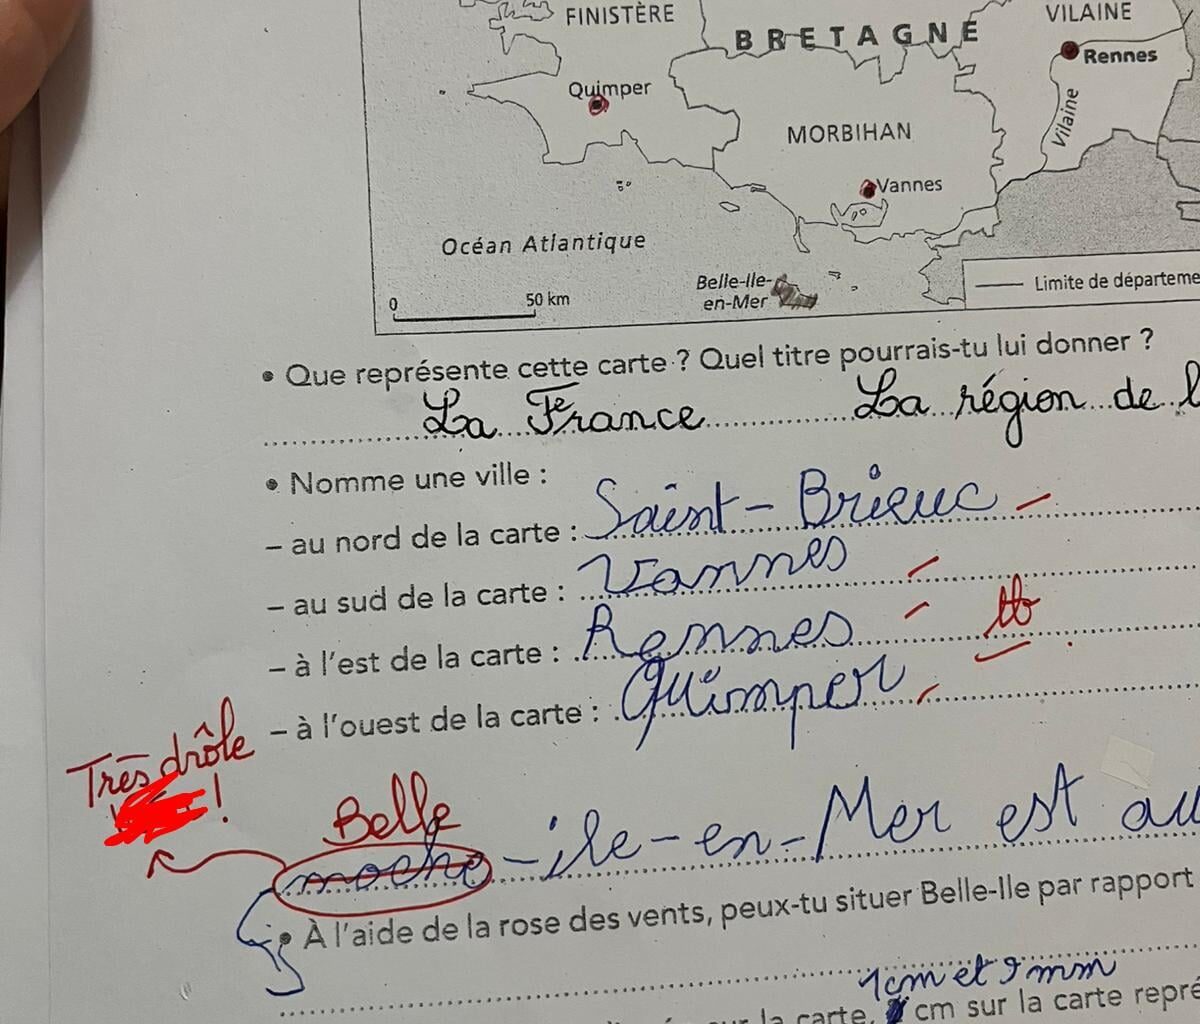 FINISTÈRE
VILAINE
BRETAGNE
Rennes
Quimper
Vilaine
MORBIHAN
Vannes
Océan Atlantique
Belle-Ile-
en-Mer
0 50 km
Limite de départeme
• Que représente cette carte ? Quel titre pourrais-tu lui donner ?
La France La région de l
• Nomme une ville :
– au nord de la carte : Saint-Brieuc
– au sud de la carte : Vannes
– à l'est de la carte : Rennes tb
– à l'ouest de la carte : Quimper
Très drôle
!
Belle
moche-ile-en-Mer est au
• À l'aide de la rose des vents, peux-tu situer Belle-Ile par rapport
1cm et 9 mm
la carte, cm sur la carte repré